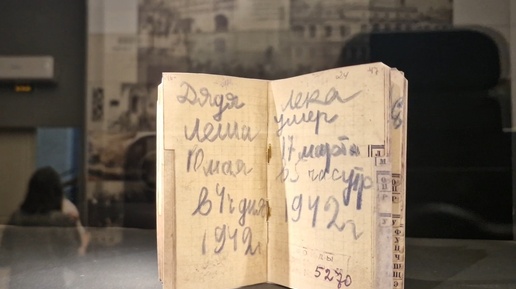 Дядя
Леша
10 мая
в 4 ч дня
1942 г
Лека
умер
17 марта
в 5 час утр
1942 г
5270